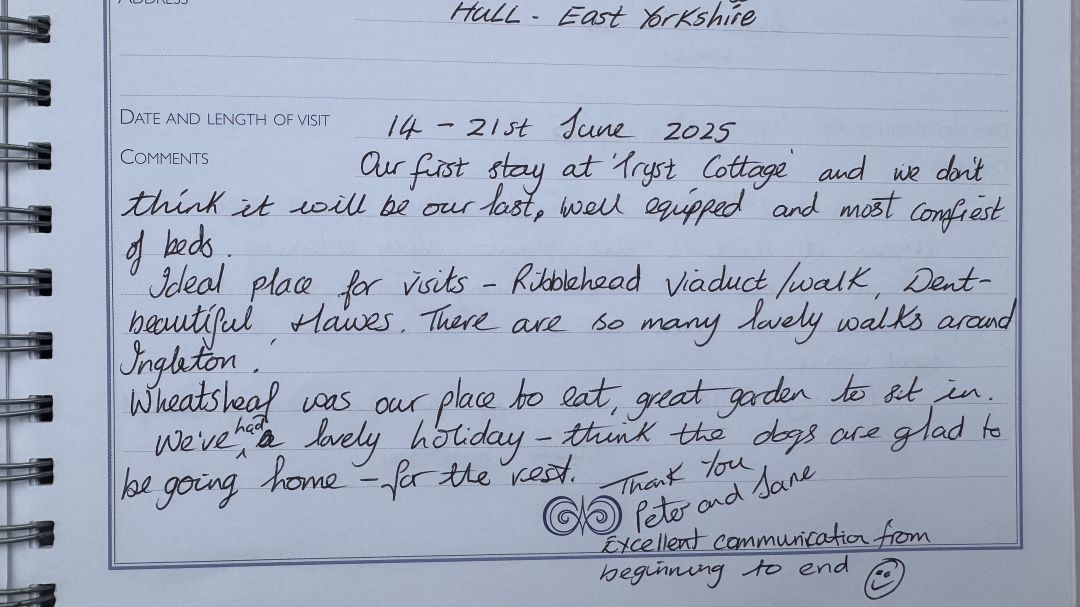 ADDRESS
HULL - East Yorkshire
DATE AND LENGTH OF VISIT 14 - 21st June 2025
COMMENTS Our first stay at 'Tryst Cottage' and we don't
think it will be our last. Well equipped and most comfiest
of beds.
Ideal place for visits - Ribblehead Viaduct/walk, Dent-
beautiful, Hawes. There are so many lovely walks around
Ingleton.
Wheatsheaf was our place to eat, great garden to sit in.
We've had a lovely holiday - think the dogs are glad to
be going home - for the rest.
Thank You
Peter and Jane
Excellent communication from
beginning to end